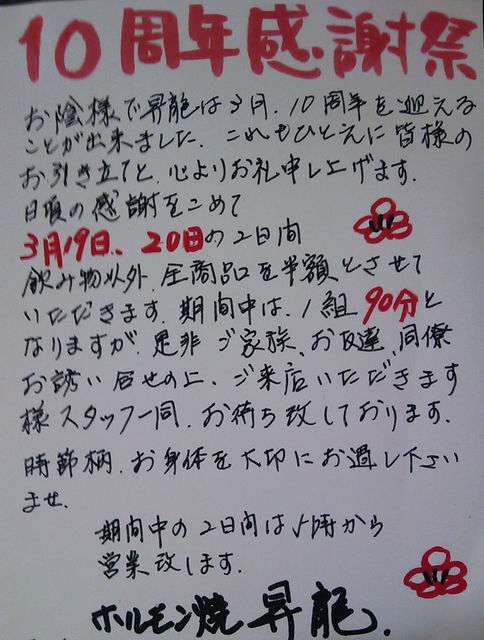 10周年感謝祭
お陰様で昇龍は3月、10周年を迎える
ことが出来ました。これもひとえに皆様の
お引き立てと、心よりお礼申し上げます。
日頃の感謝をこめて
3月19日、20日の2日間
飲み物以外、全商品を半額とさせて
いただきます。期間中は、1組90分と
なりますが、是非ご家族、お友達、同僚
お誘い合せの上、ご来店いただきます
様スタッフ一同、お待ち致しております。
時節柄、お身体を大切にお過し下さい
ませ。
期間中の2日間は5時から
営業致します。
ホルモン焼 昇龍.